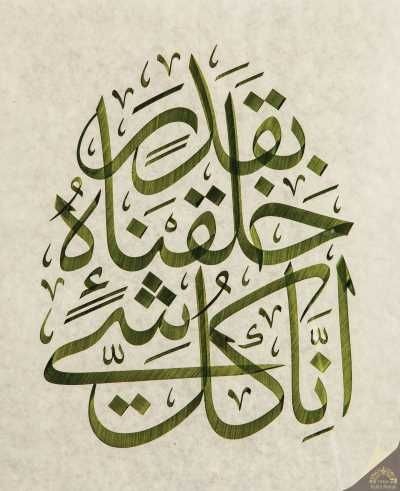 إِنَّا كُلَّ شَيْءٍ
خَلَقْنَاهُ
بِقَدَرٍ